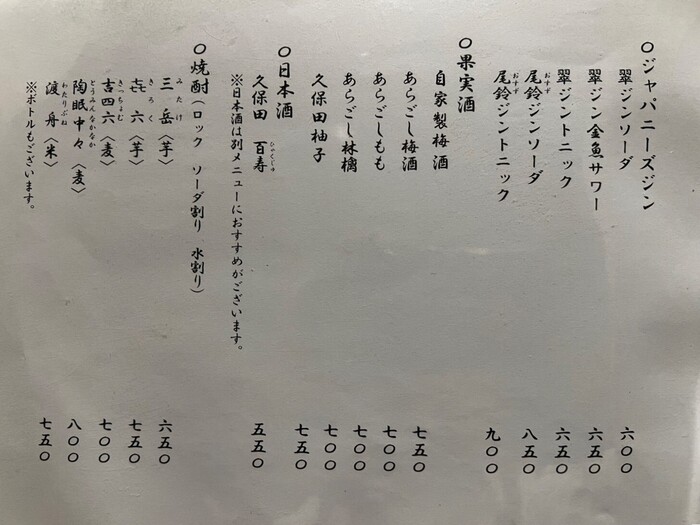 〇ジャパニーズジン
翠ジンソーダ 六〇〇
翠ジン金魚サワー 六五〇
翠ジントニック 六五〇
おすず
尾鈴ジンソーダ 八五〇
おすず
尾鈴ジントニック 九〇〇
〇果実酒
自家製梅酒 七五〇
あらごし梅酒 七〇〇
あらごしもも 七〇〇
あらごし林檎 七〇〇
久保田柚子 七五〇
〇日本酒
ひゃくじゅ
久保田 百寿 五五〇
※日本酒は別メニューにおすすめがございます。
〇焼酎(ロック ソーダ割り 水割り)
みたけ
三岳〈芋〉 六五〇
きろく
㐂六〈芋〉 七五〇
きっちょむ
吉四六〈麦〉 七〇〇
どうみんなかなか
陶眠中々〈麦〉 八〇〇
わたりぶね
渡舟〈米〉 七五〇
※ボトルもございます。